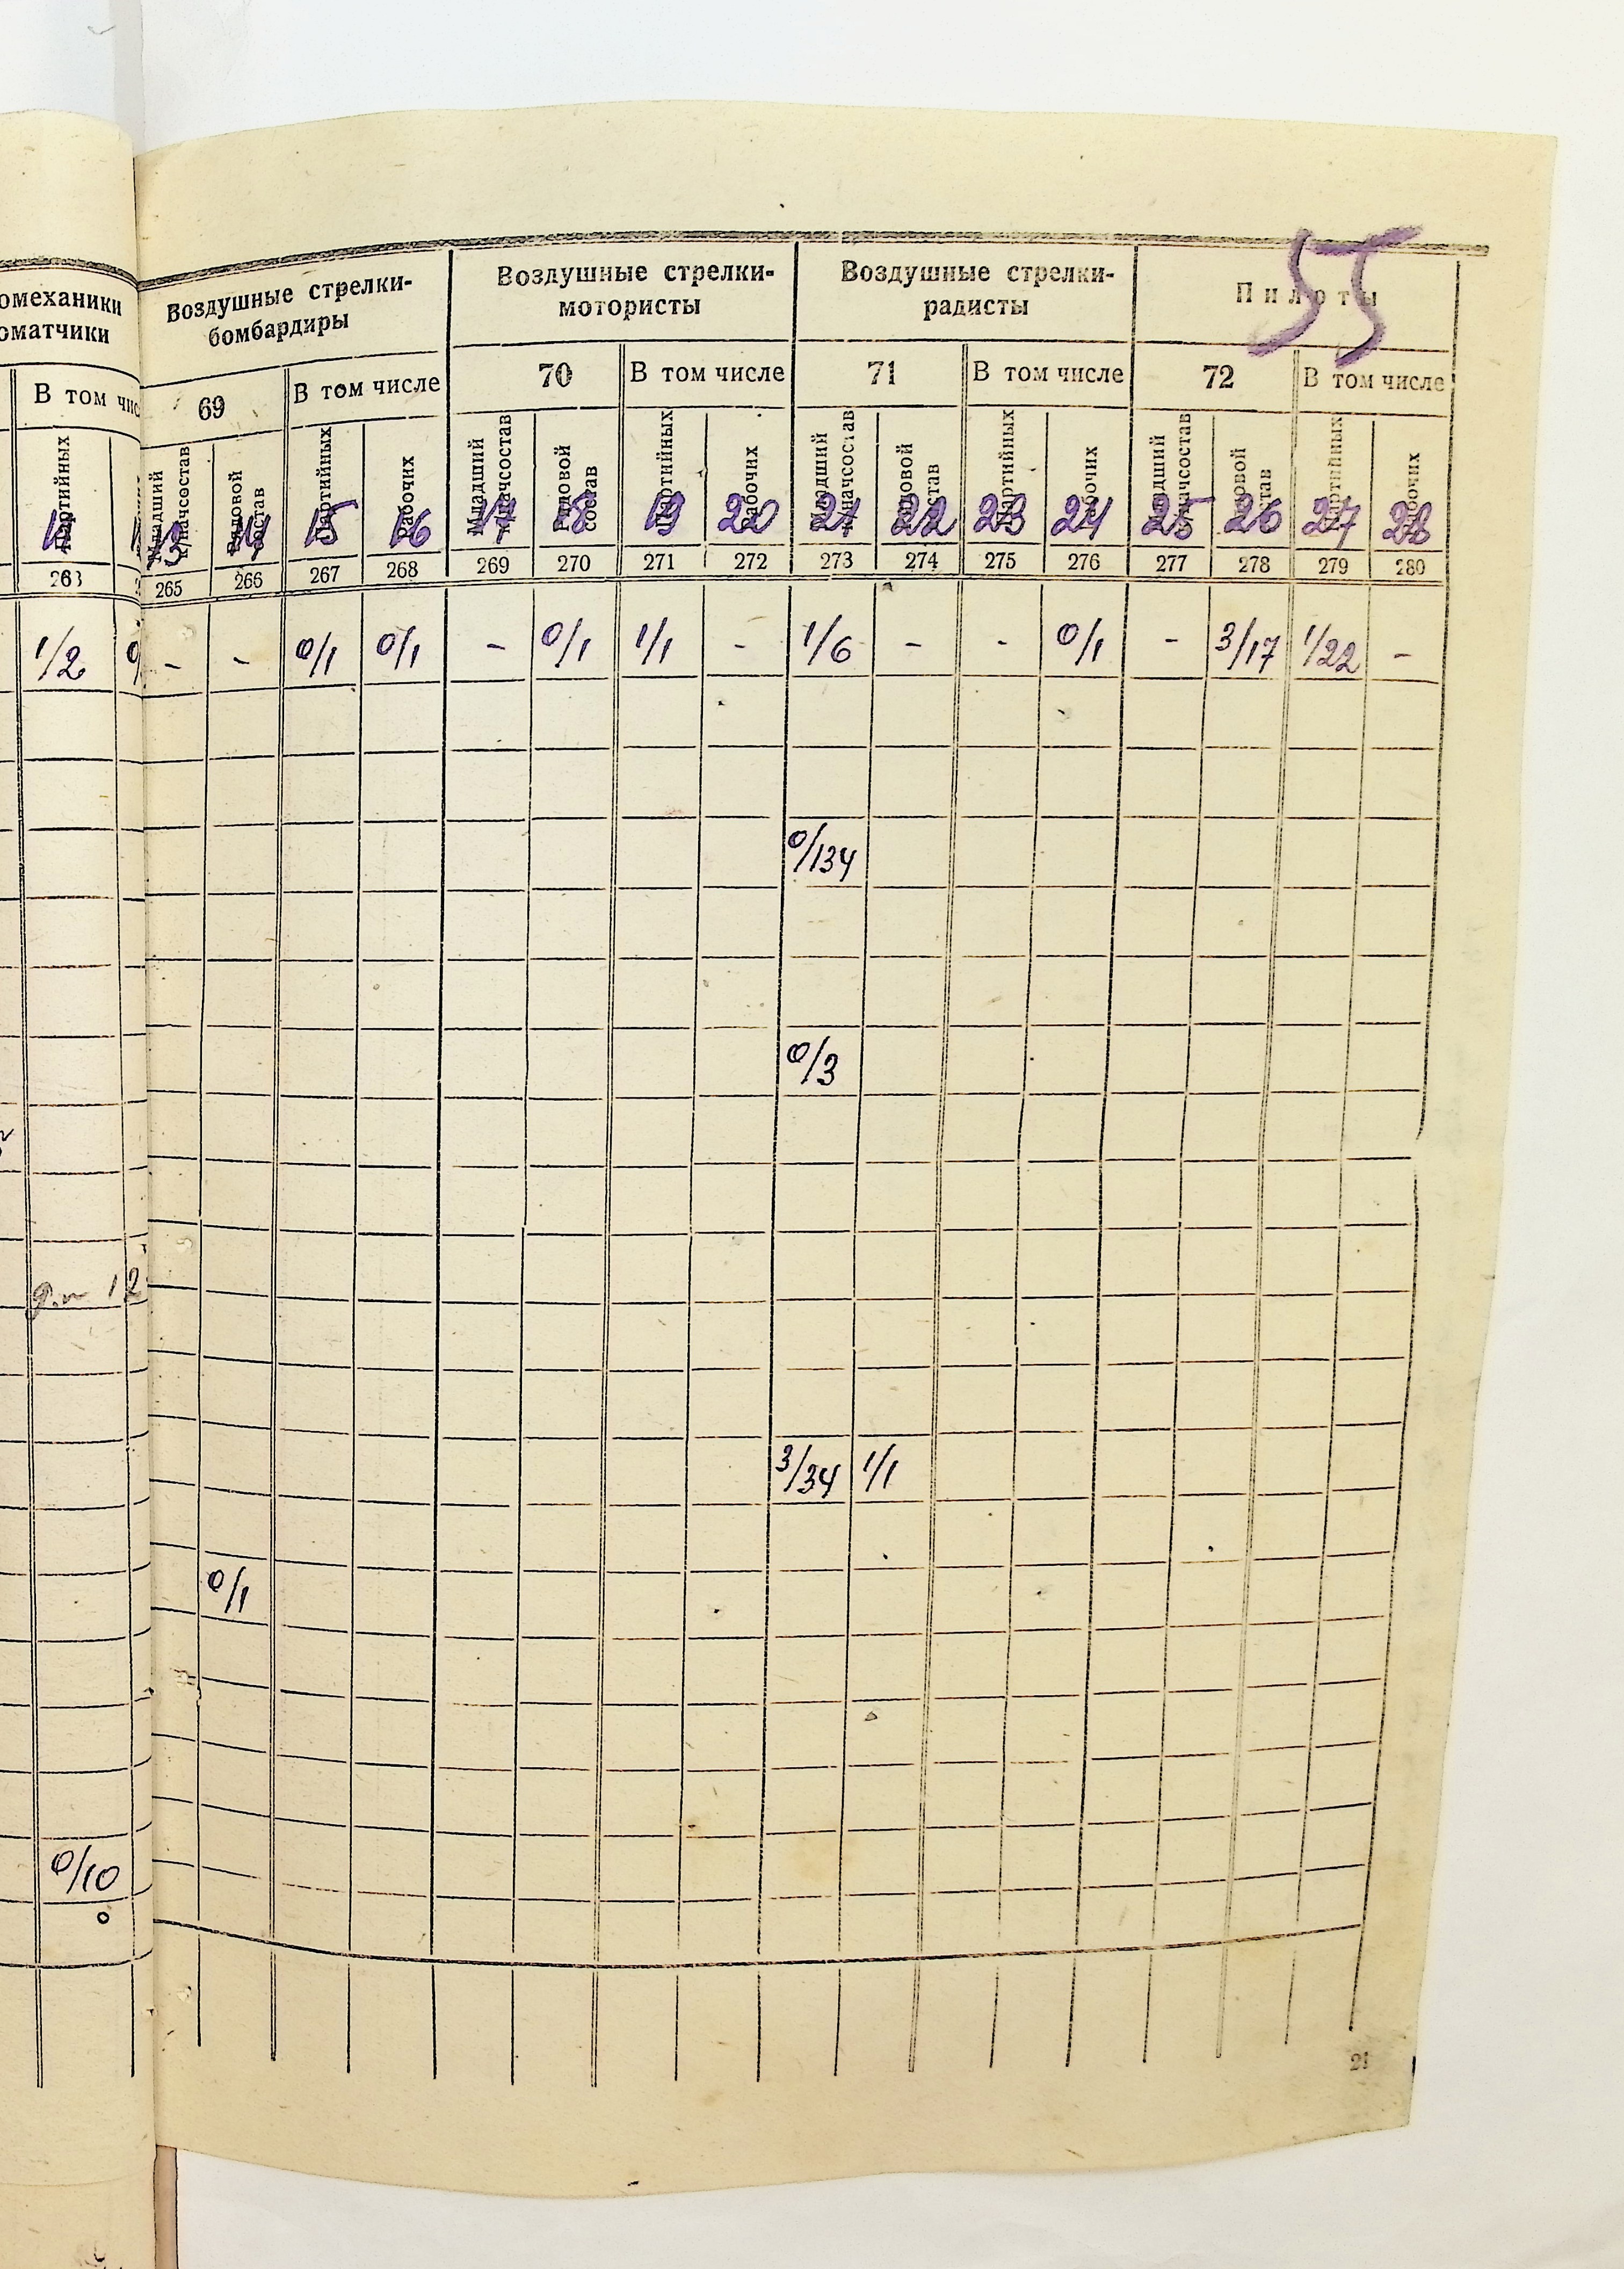 55
омеханики
оматчики
Воздушные стрелки-
бомбардиры
Воздушные стрелки-
мотористы
Воздушные стрелки-
радисты
Пилоты
В том чис 69 В том числе 70 В том числе 71 В том числе 72 В том числе
Партийных Младший начсостав Рядовой состав Партийных Рабочих Младший начсостав Рядовой состав Партийных Рабочих Младший начсостав Рядовой состав Партийных Рабочих Младший начсостав Рядовой состав Партийных Рабочих
11 13 14 15 16 17 18 19 20 21 22 23 24 25 26 27 28
263 265 266 267 268 269 270 271 272 273 274 275 276 277 278 279 280
1/2 0/ - - 0/1 0/1 - 0/1 1/1 - 1/6 - - 0/1 - 3/17 1/22 -
0/134
0/3
12
3/34 1/1
0/1
0/10
0
21